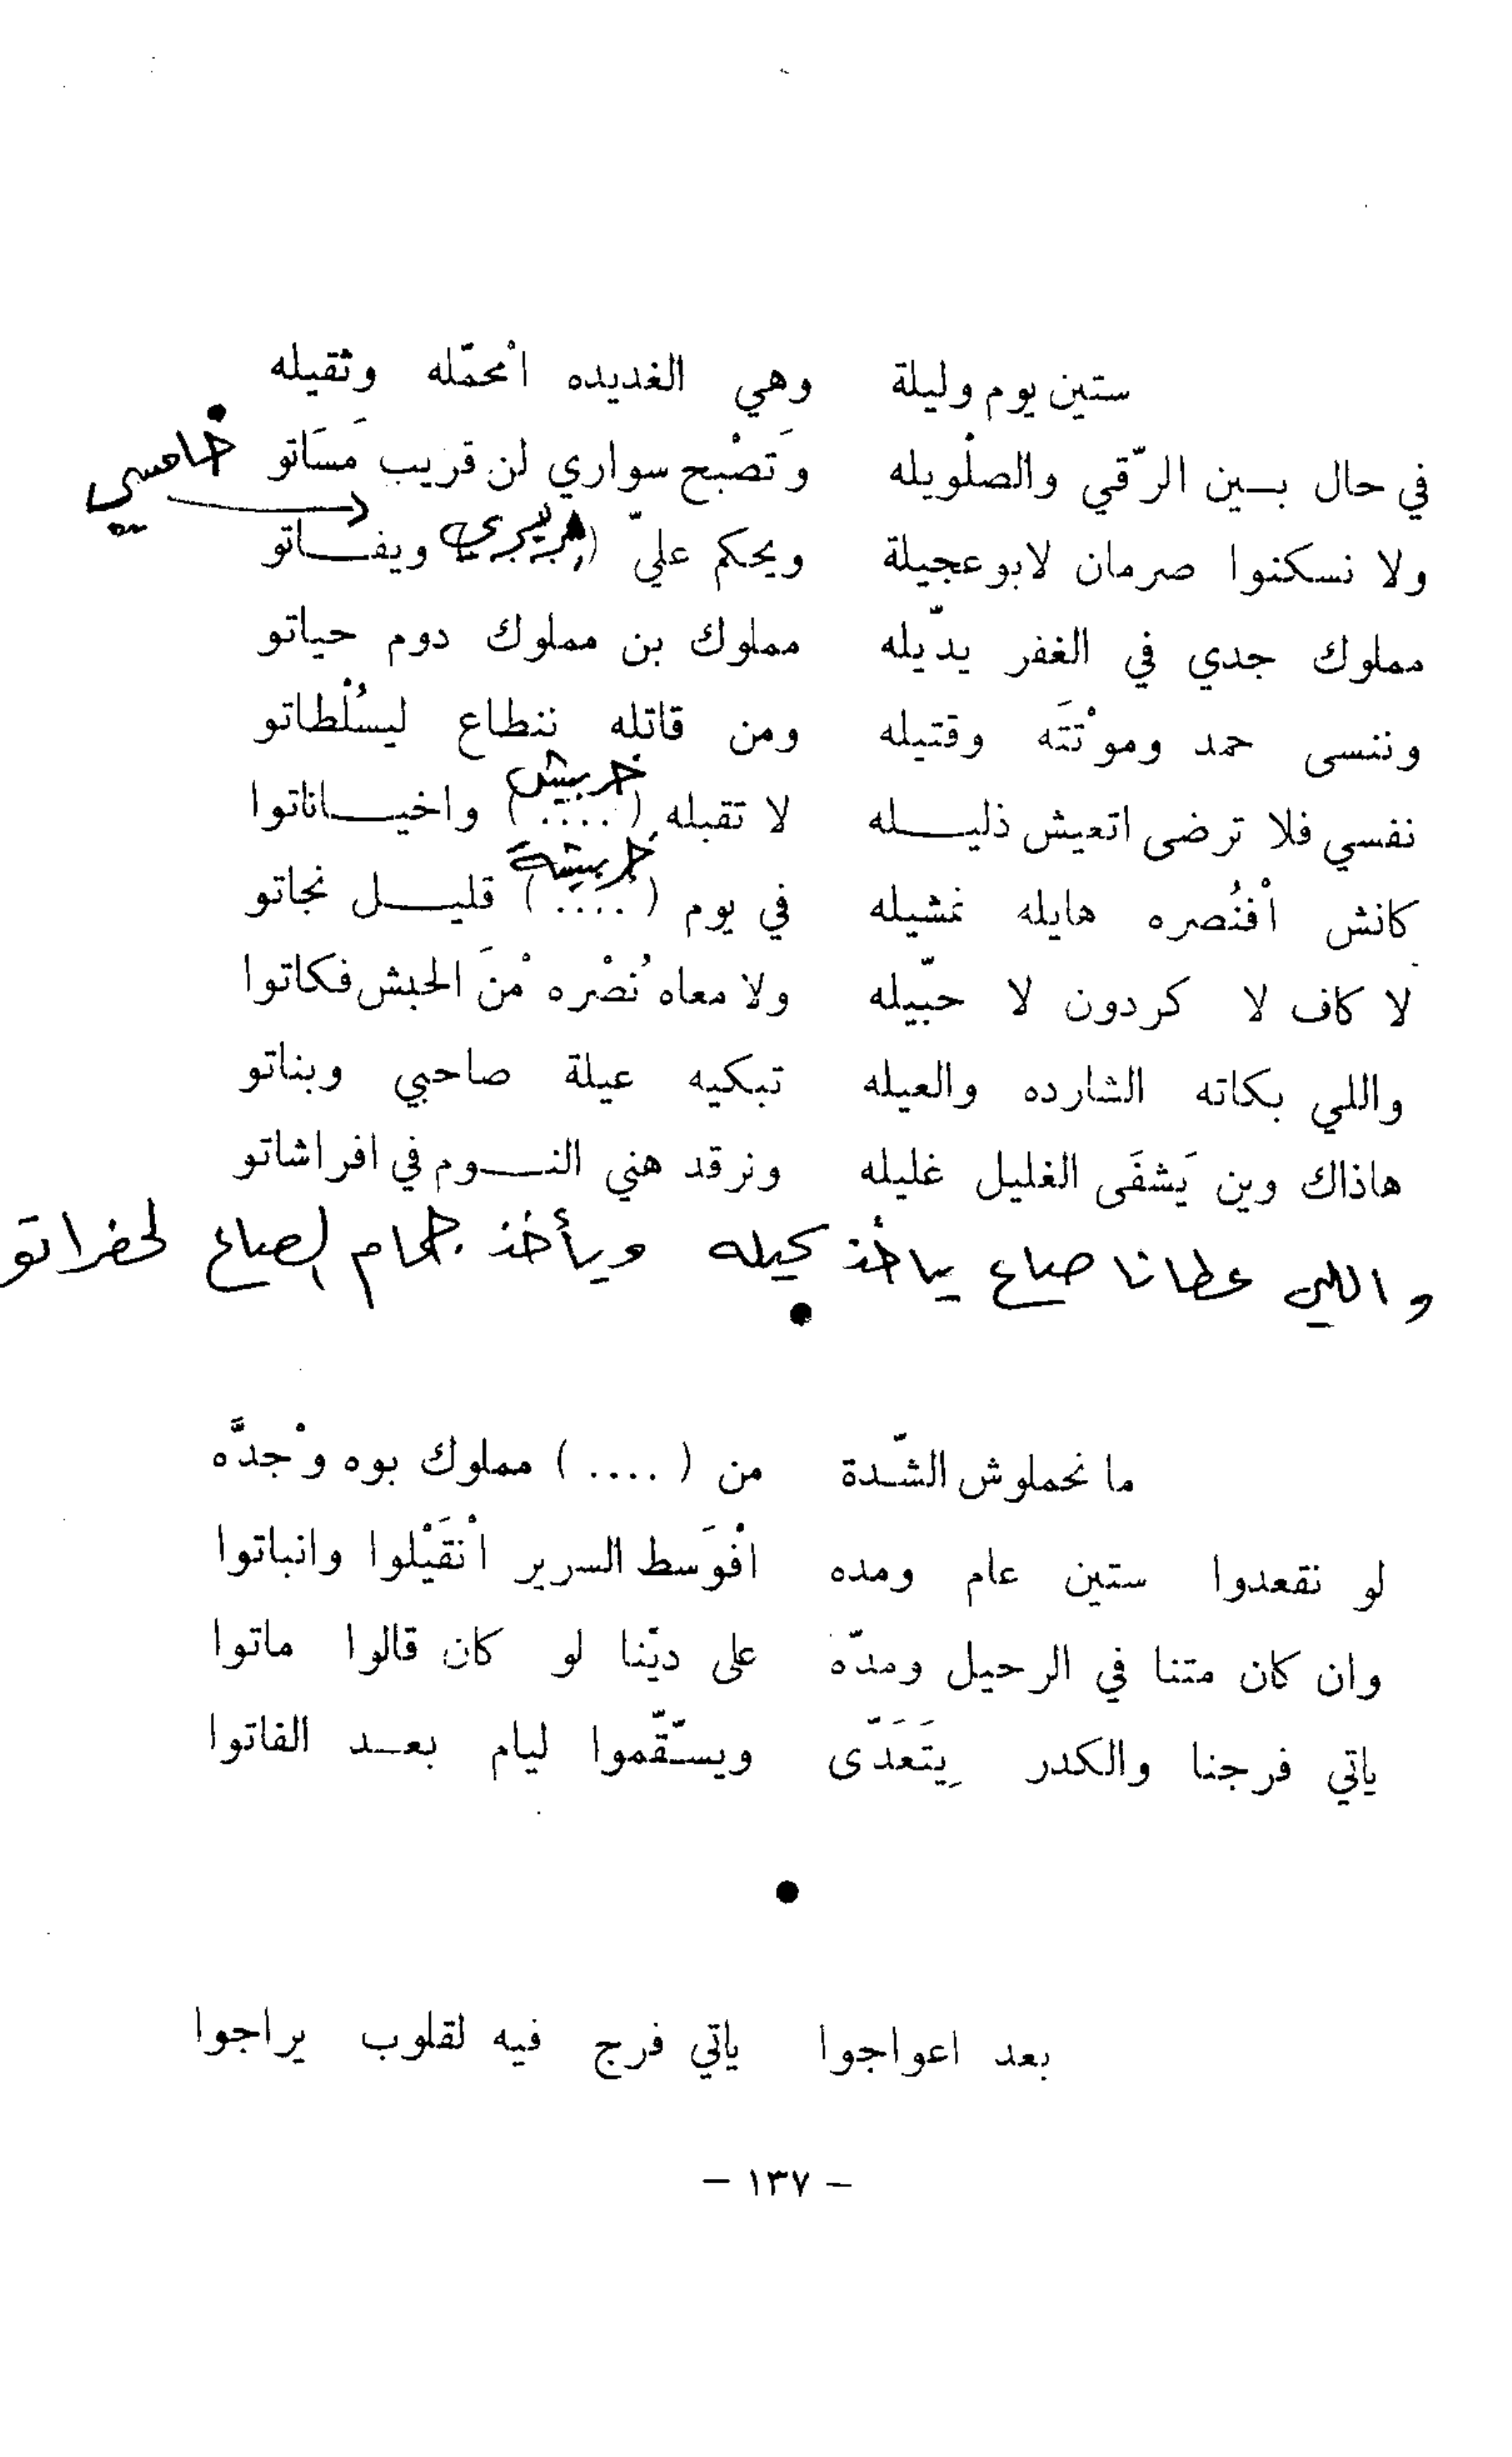 ستين يوم وليلة وهي الغديده امْحمّله وثقيله
في حال بين الرّقي والصلْويله وَتصْبح سواري لن قريب مَسَاتو خامسي
ولا نسكنوا صرمان لابو عجيلة ويحكم عليّ (بربري) ويفاتو
مملوك جدي في الغفر يدّيله مملوك بن مملوك دوم حياتو
وننسى حمد وموْتتَه وقتيله ومن قاتله ننطاع ليسُلْطاتو
نفسي فلا ترضى اتعيش ذليله لا تقبله (....) خربيش واخياناتوا
كانش اْفنُصره هايله تمشيله في يوم (....) خربيشة قليل نجاتو
لا كاف لا كردون لا حبّيله ولا معاه نُصْره مْنَ الحبش فكاتوا
واللي بكاته الشارده والعيله تبكيه عيلة صاحبي وبناتو
هاذاك وين يَشفَى الغليل غليله ونرقد هني النوم في افراشاتو
واللي عطانا صاع ياخذ كيله ويأخذ جمام الصاع لحضراتو
ما نحملوش الشّدة من (....) مملوك بوه وْجدَّه
لو نقعدوا ستين عام ومده افْوَسط السرير انْقَيْلوا وانباتوا
وان كان متنا في الرحيل ومدّه على ديّنا لو كان قالوا ماتوا
ياتي فرجنا والكدر يِتَعَدّى ويسّقّموا ليام بعد الفاتوا
بعد اعواجوا ياتي فرج فيه لقلوب يراجوا
– ١٣٧ –